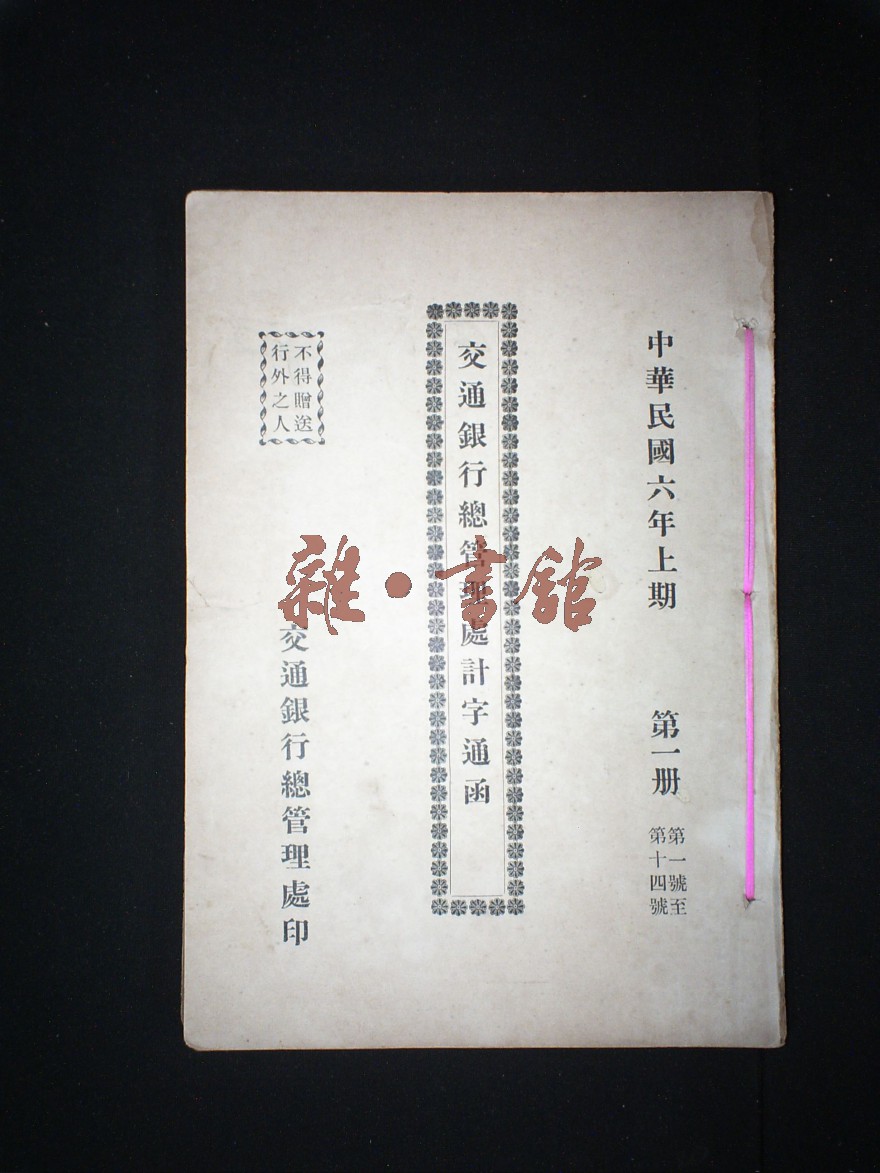 中華民國六年上期 第一册
第一號至
第十四號
交通銀行總管理處計字通函
不得贈送
行外之人
交通銀行總管理處印
雜·書館